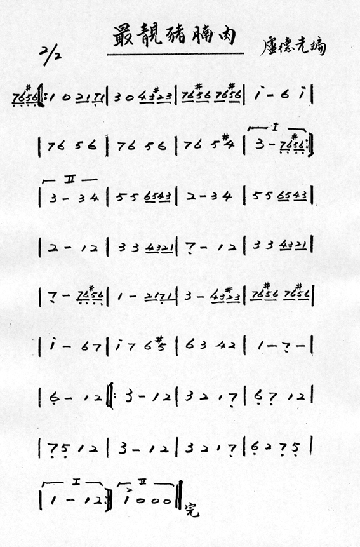 最靚豬腩肉
2/2 盧德光編
7#656 |: i 0 2171 | 3 0 4#323 | 7#656 7#656 | i - 6 i |
| 76 56 | 76 56 | 76 5#4 | I 3 - 7#656 :|
| II 3 - 34 | 55 6543 | 2 - 34 | 55 6543 |
| 2 - 12 | 33 4321 | 7 - 12 | 33 4321 |
| 7 - 7#656 | 1 - 2171 | 3 - 4#323 | 7#656 7#656 |
| i - 67 | i 7 6#5 | 63 42 | 1 - 7 - |
| 6 - 12 |: 3 - 12 | 32 17 | 67 12 |
| 75 12 | 3 - 12 | 32 17 | 62 75 |
| I 1 - 12 :| II i 000 || 完